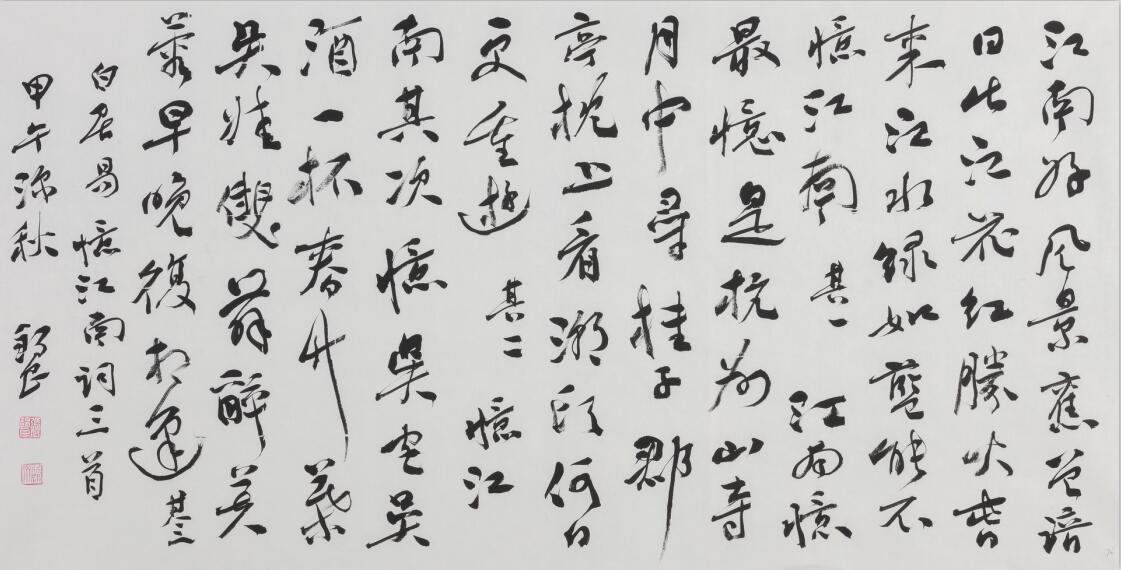 江南好风景舊曾谙
日出江花红勝火春
来江水緑如藍能不
憶江南 其一 江南憶
最憶是杭州山寺
月中尋桂子郡
亭枕上看潮头何日
更重遊 其二 憶江
南其次憶吴宫吴
酒一杯春竹葉
吴娃雙舞醉芙
蓉早晚復相逢 其三
白居易憶江南词三首
甲午深秋